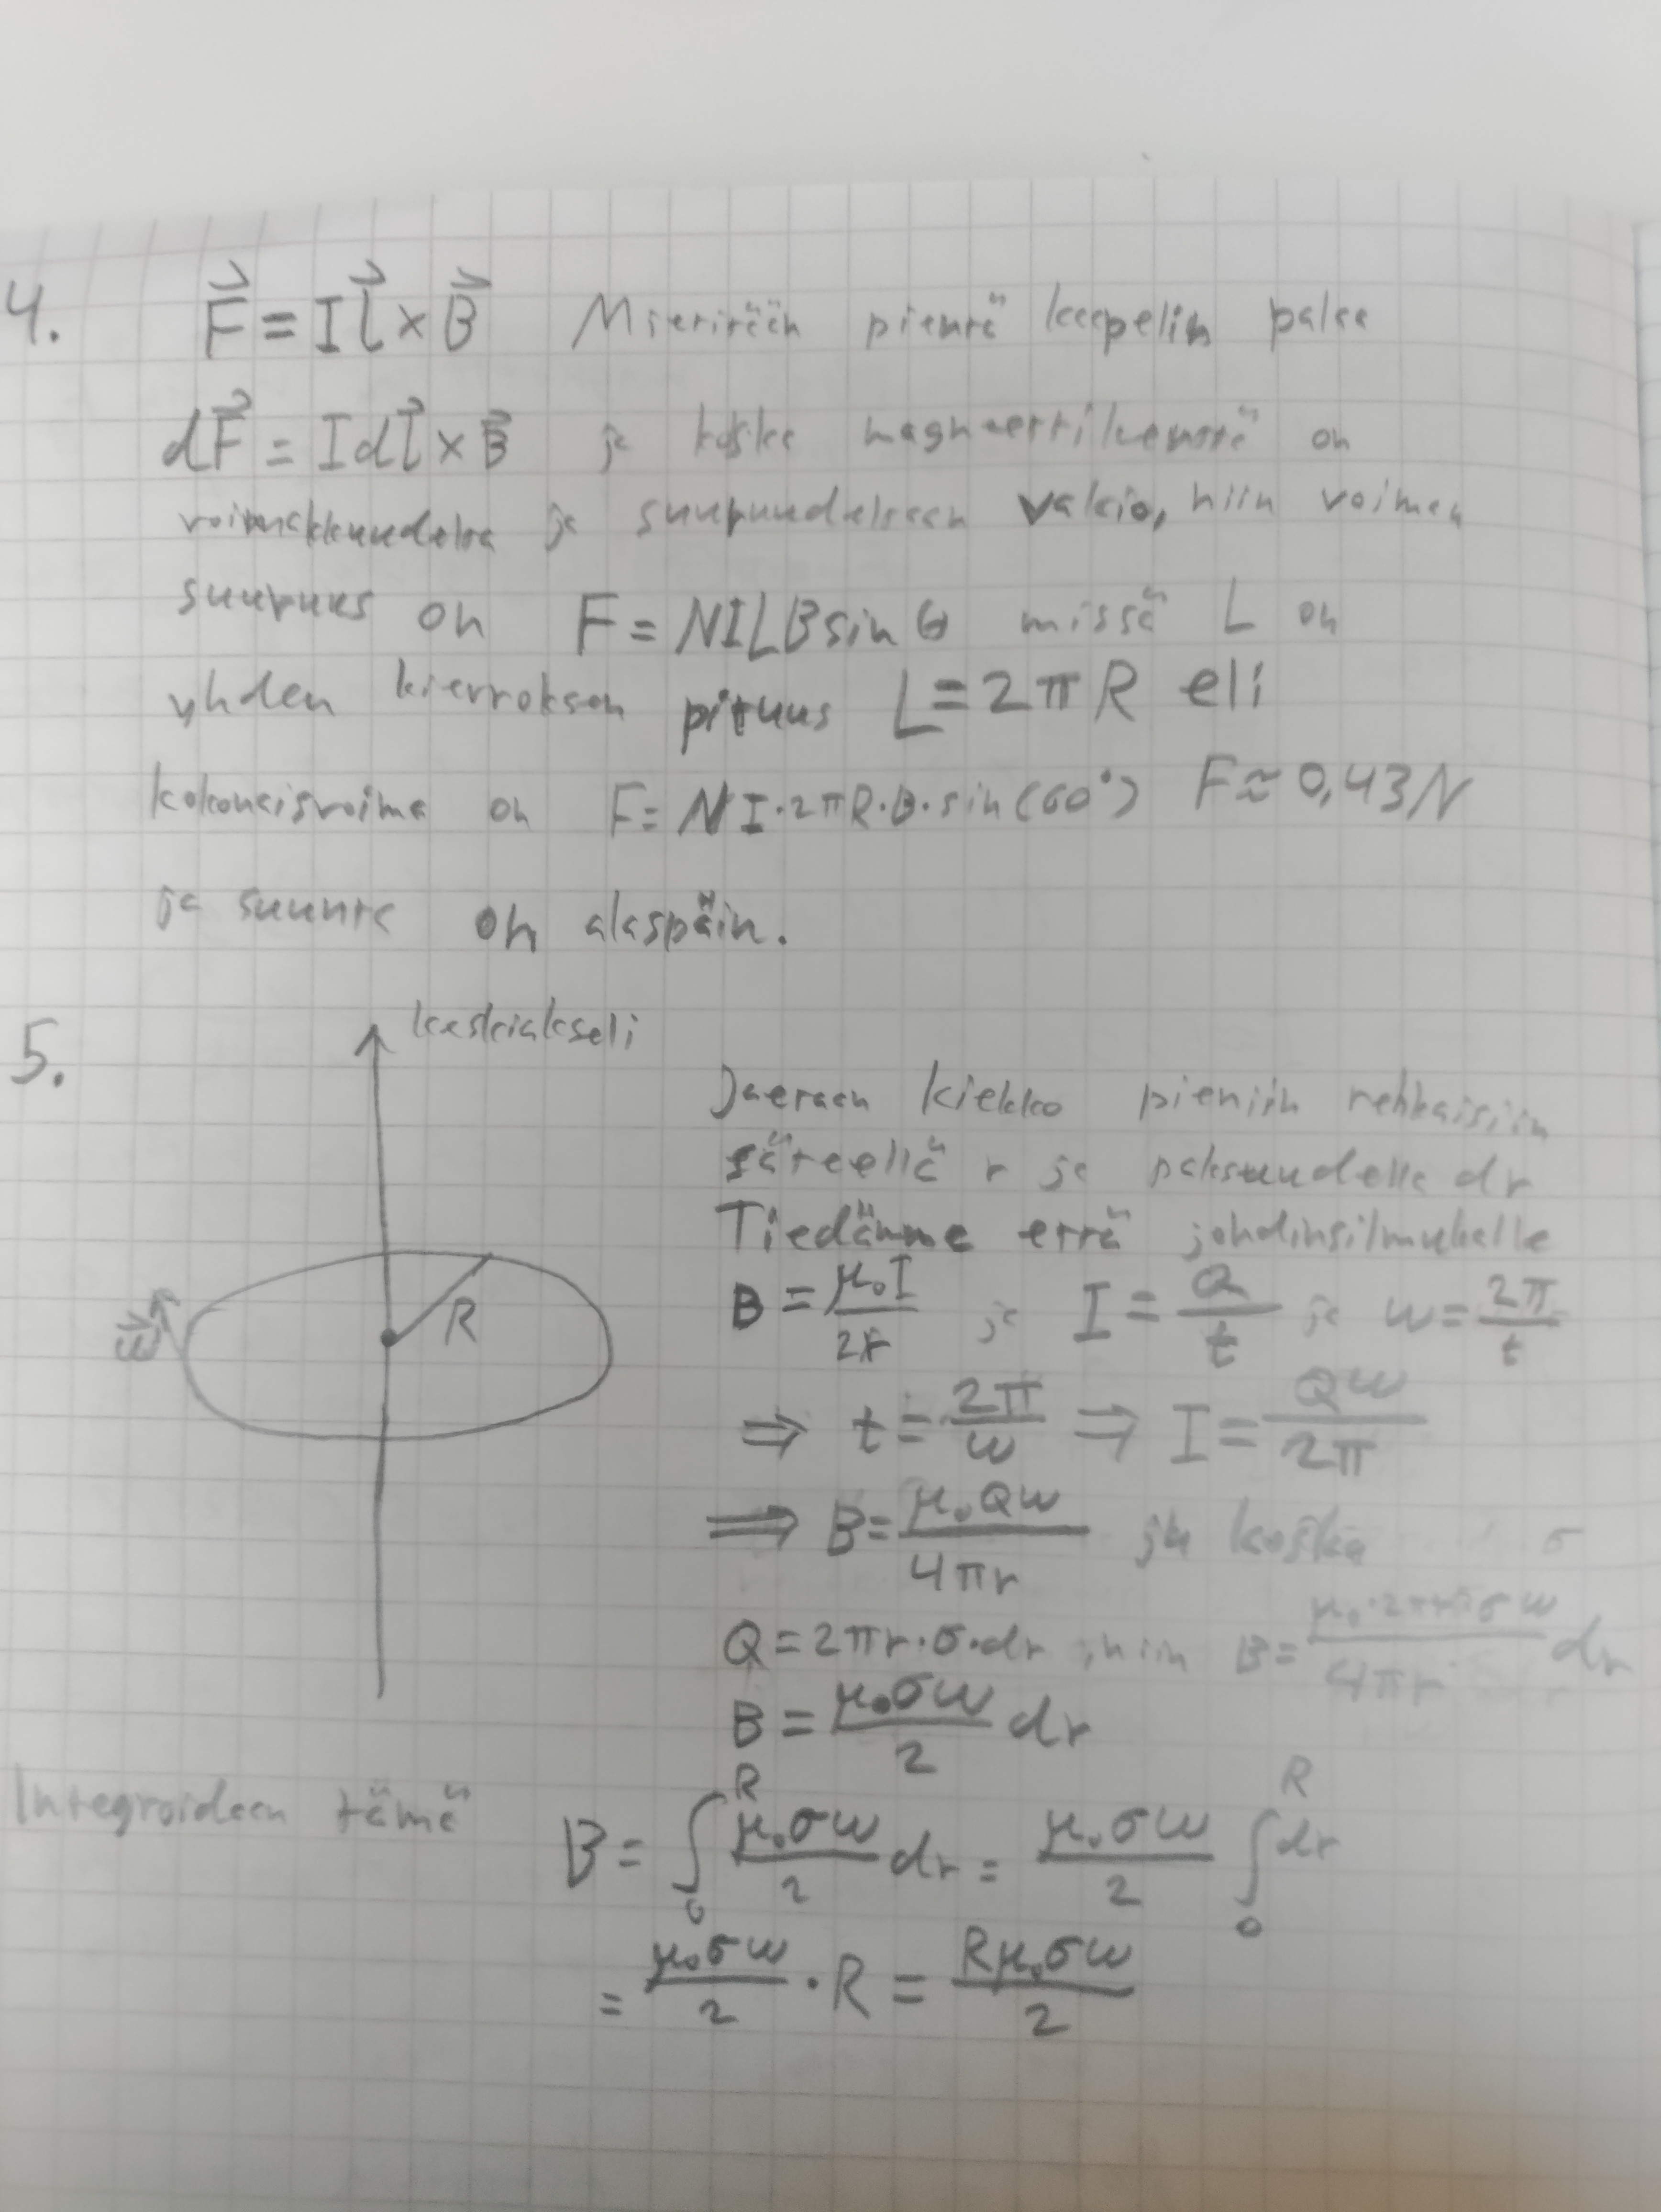 4. F⃗ = I l⃗ × B⃗ Mieritään pientä kaapelin palaa
dF⃗ = I dl⃗ × B⃗ ja koska magneettikenttä on
voimakkuudelta ja suuruudeltaan vakio, niin voiman
suuruus on F = NILB sin θ missä L on
yhden kierroksen pituus L = 2πR eli
kokonaisvoima on F = NI·2πR·B·sin(60°) F ≈ 0,43N
ja suunta on alaspäin.
5. keskiakseli
ω⃗
R
Jaetaan kiekko pieniin renkaisiin
säteellä r ja paksuudella dr
Tiedämme että johdinsilmukalle
B = μ₀I/2r ja I = Q/t ja ω = 2π/t
⇒ t = 2π/ω ⇒ I = Qω/2π
⇒ B = μ₀Qω/4πr ja koska
Q = 2πr·σ·dr, niin B = μ₀·2πr·σω/4πr dr
B = μ₀σω/2 dr
Integroidaan tämä B = ∫₀ᴿ μ₀σω/2 dr = μ₀σω/2 ∫₀ᴿ dr
= μ₀σω/2 · R = Rμ₀σω/2